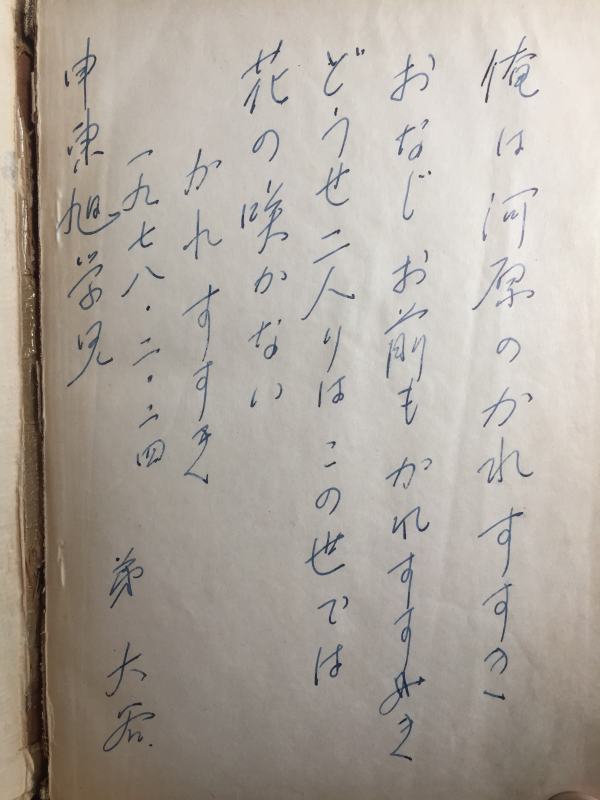 俺は河原のかれすすき
おなじお前もかれすすき
どうせ二人りはこの世では
花の咲かない
かれすすき
一九七八・二・二四
弟 大容
申東旭学兄